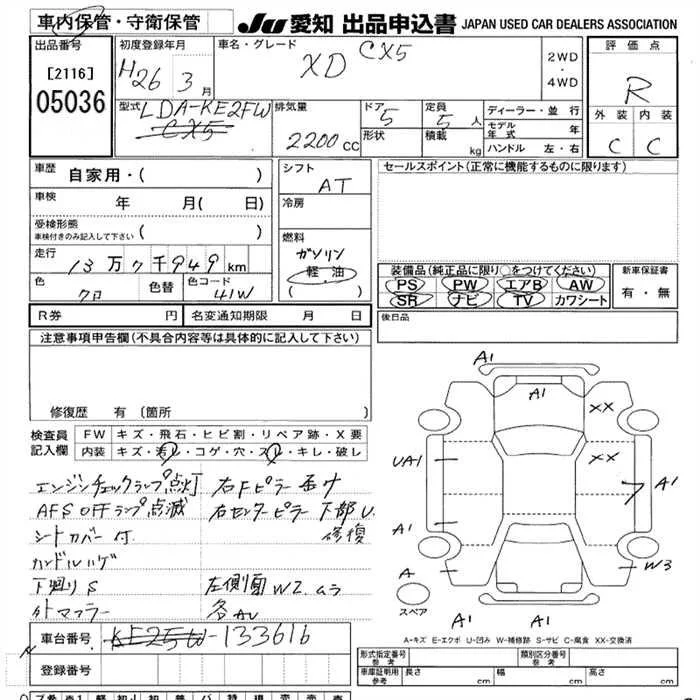 車内保管・守衛保管
JU 愛知 出品申込書 JAPAN USED CAR DEALERS ASSOCIATION
出品番号
[2116]
05036
初度登録年月
H26 3月
車名・グレード
XD CX5
2WD
・
4WD
評価点
R
外装 内装
C C
型式 LDA-KE2FW
CX5
排気量
2200cc
ドア 5
形状
定員 5人
積載 kg
ディーラー・並行
モデル年式 年
ハンドル 左・右
車歴 自家用・( )
車検 年 月( 日)
受検形態
車検付きのみ記入して下さい ( )
走行 13万7千949km
色 クロ
色替
色コード 41W
シフト AT
冷房
燃料
ガソリン
軽油
( )
セールスポイント(正常に機能するものに限ります)
装備品(純正品に限り○をつけてください)
PS PW エアB AW
SR ナビ TV カワシート
新車保証書
有・無
R券 円 名変通知期限 月 日
後日品
注意事項申告欄(不具合内容等は具体的に記入して下さい)
修復歴 有 (箇所 )
検査員記入欄
FW キズ・飛石・ヒビ割・リペア跡・X要
内装 キズ・汚レ・コゲ・穴・スレ・キレ・破レ
エンジンチェックランプ点灯
AFS OFFランプ点滅
シートカバー付
ハンドルハゲ
下廻りS
外マフラー
右Fピラー
右センターピラー下部U
修復
左側面W2ムラ
各AU
A1
A1
XX
XX
UA1
A1
A1
A
W3
スペア
A1
A1
A-キズ E-エクボ U-凹み W-補修跡 S-サビ C-腐食 XX-交換済
車台番号 KE25W-133616
登録番号
形式指定番号
参考
類別区分番号
参考
車庫証明用
参考
長さ cm 幅 cm 高さ cm